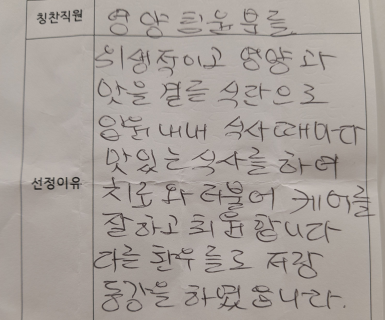 칭찬직원
영양팀원분들
선정이유
위생적이고 영양과
맛을 곁들 식단으로
입원 내내 식사때마다
맛있는 식사를 하여
치료와 더불어 케어를
잘하고 퇴원합니다
다른 환우들도 저랑
동감을 하였읍니다.